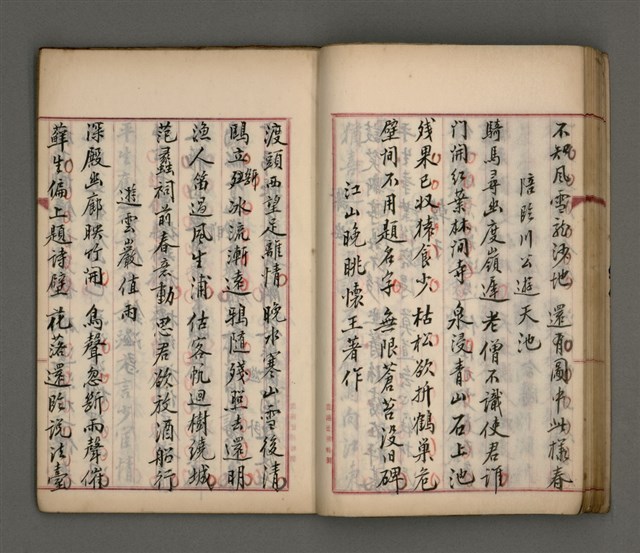 不知風雪龍沙地 還有圖中此樣春
陪臨川公遊天池
騎馬尋幽度嶺遲 老僧不識使君誰
門開紅葉林間寺 泉浸青山石上池
殘果已收猿食少 枯松欲折鶴巢危
壁間不用題名字 無限蒼苔沒旧碑
江山晚眺懷王著作
渡頭西望足離情 晚水寒山雪後清
鷗立斷冰流漸遠 鴉隨殘照去還明
漁人笛過風生浦 估客帆迴樹繞城
范蠡祠前春意動 思君欲放酒船行
遊雲巖值雨
深殿幽廊映竹開 鳥聲忽斷雨聲催
蘚生偏上題詩壁 花落還臨說法臺